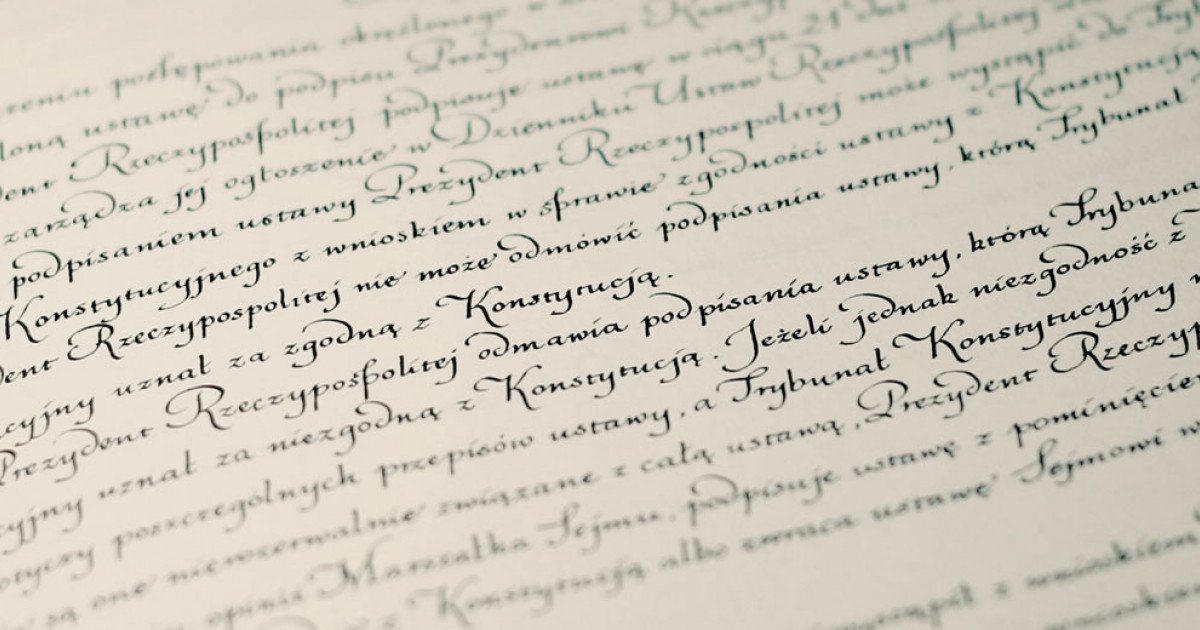 zeniu postępowania określonego w
loną ustawę do podpisu Prezydentowi Rzeczyp
dent Rzeczypospolitej podpisuje ustawę w ciągu 21 dni
zarządza jej ogłoszenie w Dzienniku Ustaw Rzeczypospolitej
podpisaniem ustawy Prezydent Rzeczypospolitej może wystąpić do Tryb
Konstytucyjnego z wnioskiem w sprawie zgodności ustawy z Konstytucją
dent Rzeczypospolitej nie może odmówić podpisania ustawy, którą Trybunał
cyjny uznał za zgodną z Konstytucją.
Prezydent Rzeczypospolitej odmawia podpisania ustawy, którą Trybuna
cyjny uznał za niezgodną z Konstytucją. Jeżeli jednak niezgodność z
otyczy poszczególnych przepisów ustawy, a Trybunał Konstytucyjny
są one nierozerwalnie związane z całą ustawą, Prezydent Rzeczyp
opinii Marszałka Sejmu, podpisuje ustawę z pominięciem
z Konstytucją albo zwraca ustawę Sejmowi w
wystąpił z wnioskiem